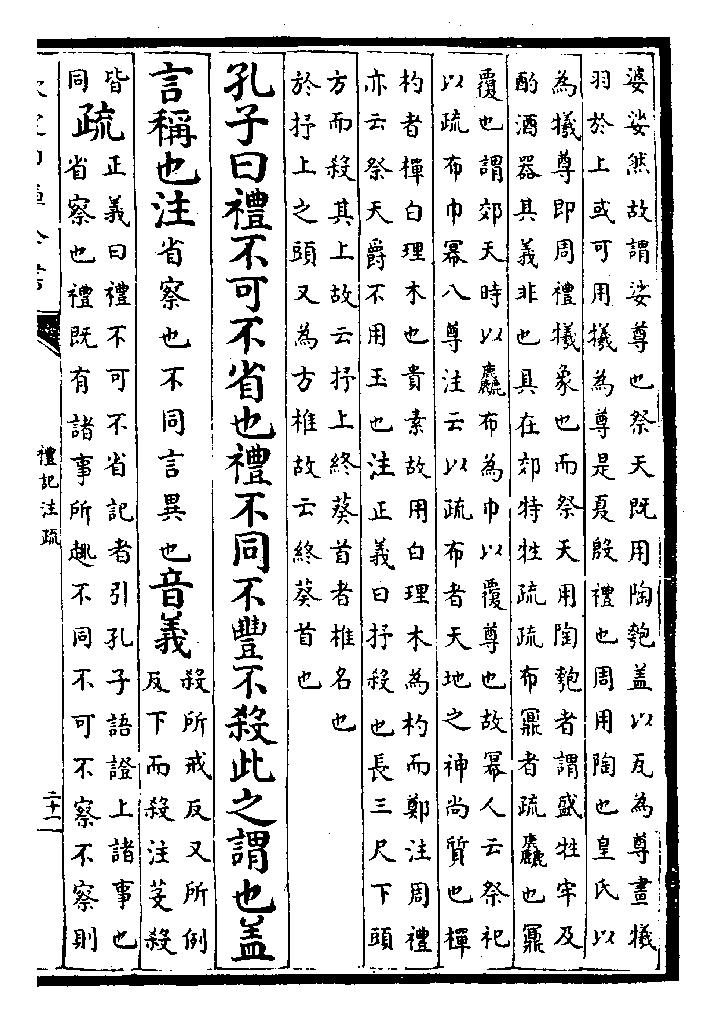 婆娑然故謂娑尊也祭天既用陶匏盖以瓦為尊畫犧
羽於上或可用犧為尊是夏殷禮也周用陶也皇氏以
為犧尊即周禮犧象也而祭天用陶匏者謂盛牲牢及
酌酒器其義非也具在郊特牲疏疏布鼏者疏麤也鼏
覆也謂郊天時以麤布為巾以覆尊也故冪人云祭祀
以疏布巾冪八尊注云以疏布者天地之神尚質也樿
杓者樿白理木也貴素故用白理木為杓而鄭注周禮
亦云祭天爵不用玉也注正義曰抒殺也長三尺下頭
方而殺其上故云抒上終葵首者椎名也
於抒上之頭又為方椎故云終葵首也
孔子曰禮不可不省也禮不同不豐不殺此之謂也盖
言稱也注省察也不同言異也音義殺所戒反又所例
反下而殺注芟殺
皆
同
疏正義曰禮不可不省記者引孔子語證上諸事也
省察也禮既有諸事所趣不同不可不察不察則
禮記注疏